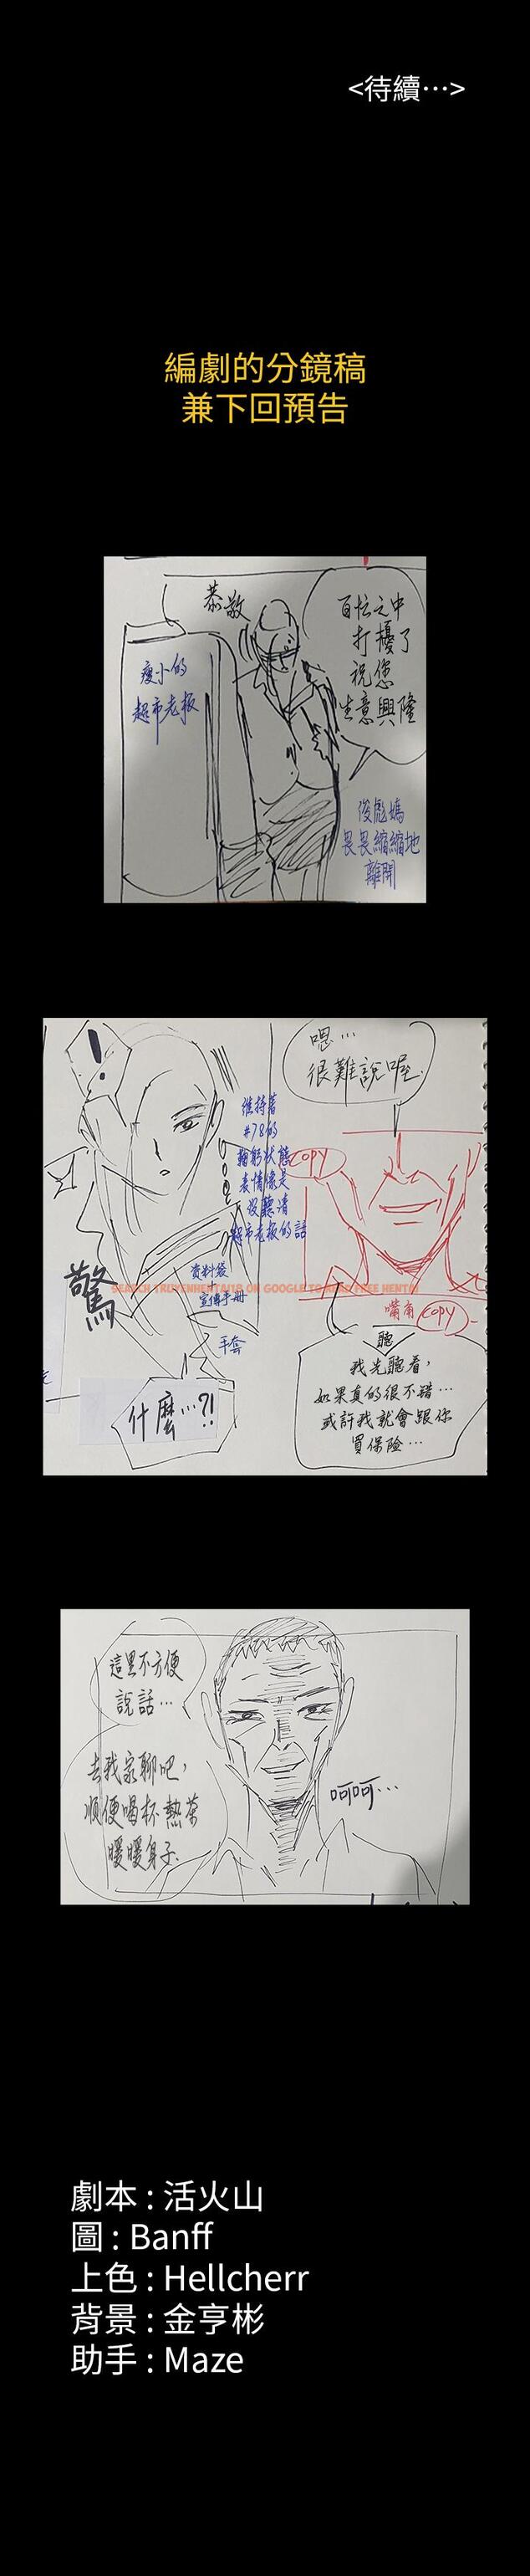 <待續…>
編劇的分鏡稿
兼下回預告
恭敬
百忙之中
打擾了
祝您
生意興隆
瘦小的
超市老板
俊彪媽
畏畏縮縮地
離開
嗯…
很難說喔.
!
維持着
#78的
鞠躬狀態
表情像是
沒聽清
超市老板的話
COPY
SEARCH TRUYENHENTAI18 ON GOOGLE TO READ FREE HENTAI
驚
资料袋
宣傳手册
手套
嘴角 COPY
聽
我先聽看,
如果真的很不錯…
或許我就會跟你
買保險…
什麼…?!
這里不方便
說話…
去我家聊吧,
順便喝杯熱茶
暖暖身子.
呵呵…
劇本 : 活火山
圖 : Banff
上色 : Hellcherr
背景 : 金亨彬
助手 : Maze